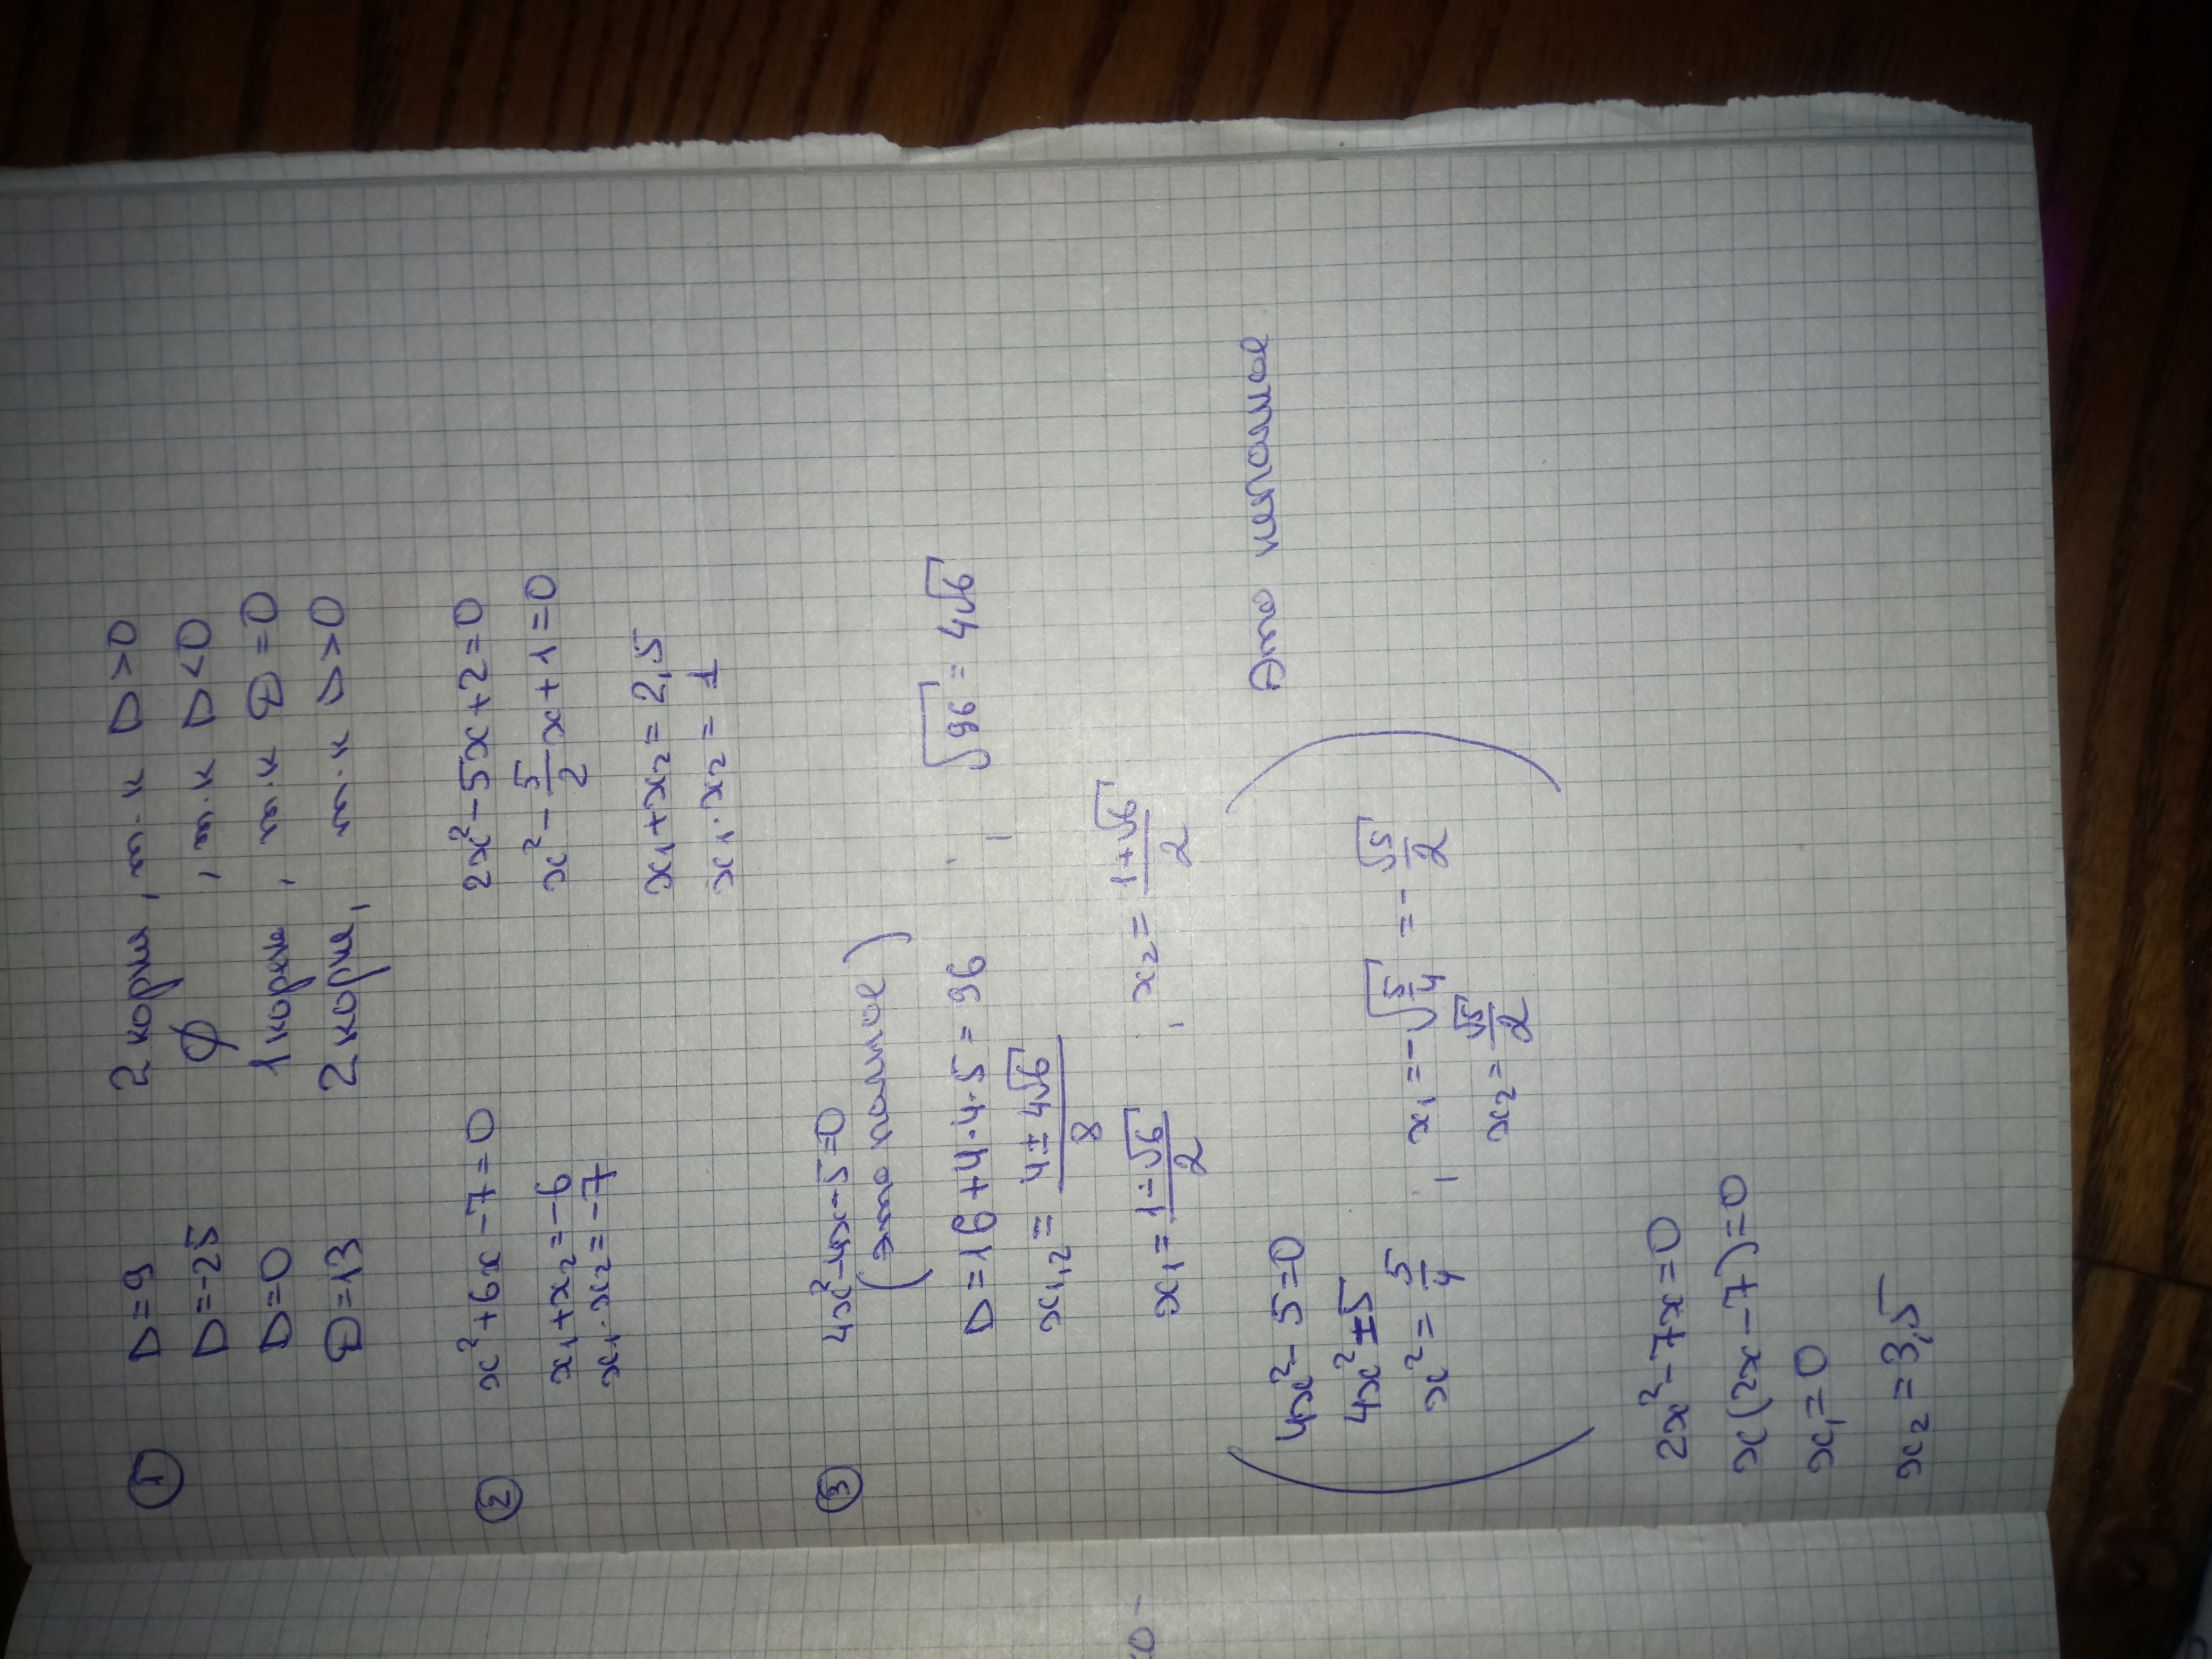 ① D=9 2 корня, т.к D>0
D=-25 ∅, т.к D<0
D=0 1 корень, т.к D=0
D=13 2 корня, т.к D>0
② x²+6x-7=0 2x²-5x+2=0
x₁+x₂=-6 x²-5/2x+1=0
x₁·x₂=-7
x₁+x₂=2,5
x₁·x₂=1
③ 4x²-4x-5=0
(это полное)
D=16+4·4·5=96, √96=4√6
x₁,₂=(4±4√6)/8
x₁=(1-√6)/2, x₂=(1+√6)/2
(4x²-5=0) Это неполное
4x²=±5
x²=5/4, x₁=-√(5/4)=-√5/2
x₂=√5/2
2x²-7x=0
x(2x-7)=0
x₁=0
x₂=3,5